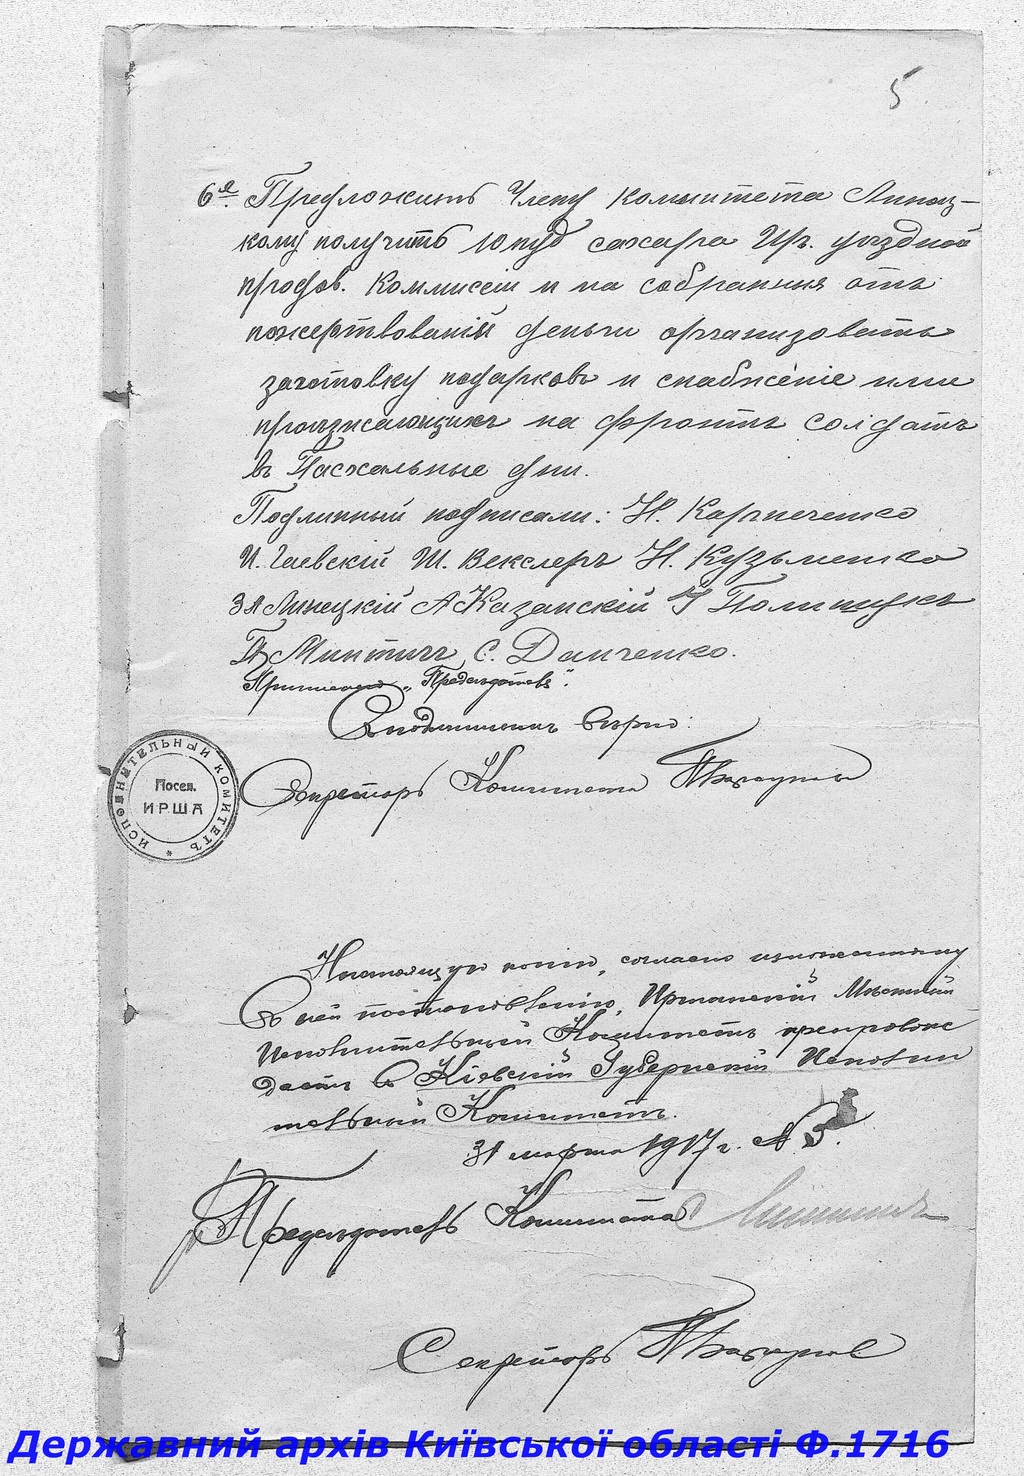 5
6е. Предложить Члену Комитета Линец-
кому получить 10 пуд сахара Ир. уездной
продов. Коммисіи и на собранния отъ
пожертвованій деньги организовать
заготовку подарковъ и снабженіе ими
на фронтѣ солдатъ
въ Пасхальные дни.
Подлинный подписали: Н. Карпеченко
И. Гаевскій Ш. Векслеръ Н. Кузьменко
ЗА Линецкій А Казанскій Полищукъ
П Минтичъ С. Данченко.
"Председатель".
Съ подлиннымъ вѣрно:
Секретарь Комитета
ИСПОЛНИТЕЛЬНЫЙ КОМИТЕТЪ
Посел.
ИРША
Настоящую копію, согласно изложенному
въ ней постановленію, Иршанскій Мѣстный
Исполнительный Комитетъ препровож
даетъ въ Кіевскій Губернскій Исполни
тельный Комитетъ.
31 марта 1917 г. № 3.
Председатель Комитета
Секретарь
Державний архів Київської області Ф.1716